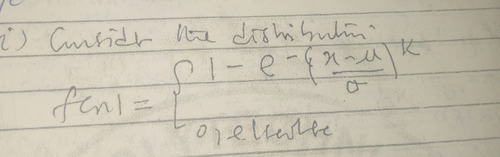 i) Consider the distribution
f(x) = { 1 - e^-{(x-μ)/σ}^K
0, elsewhere